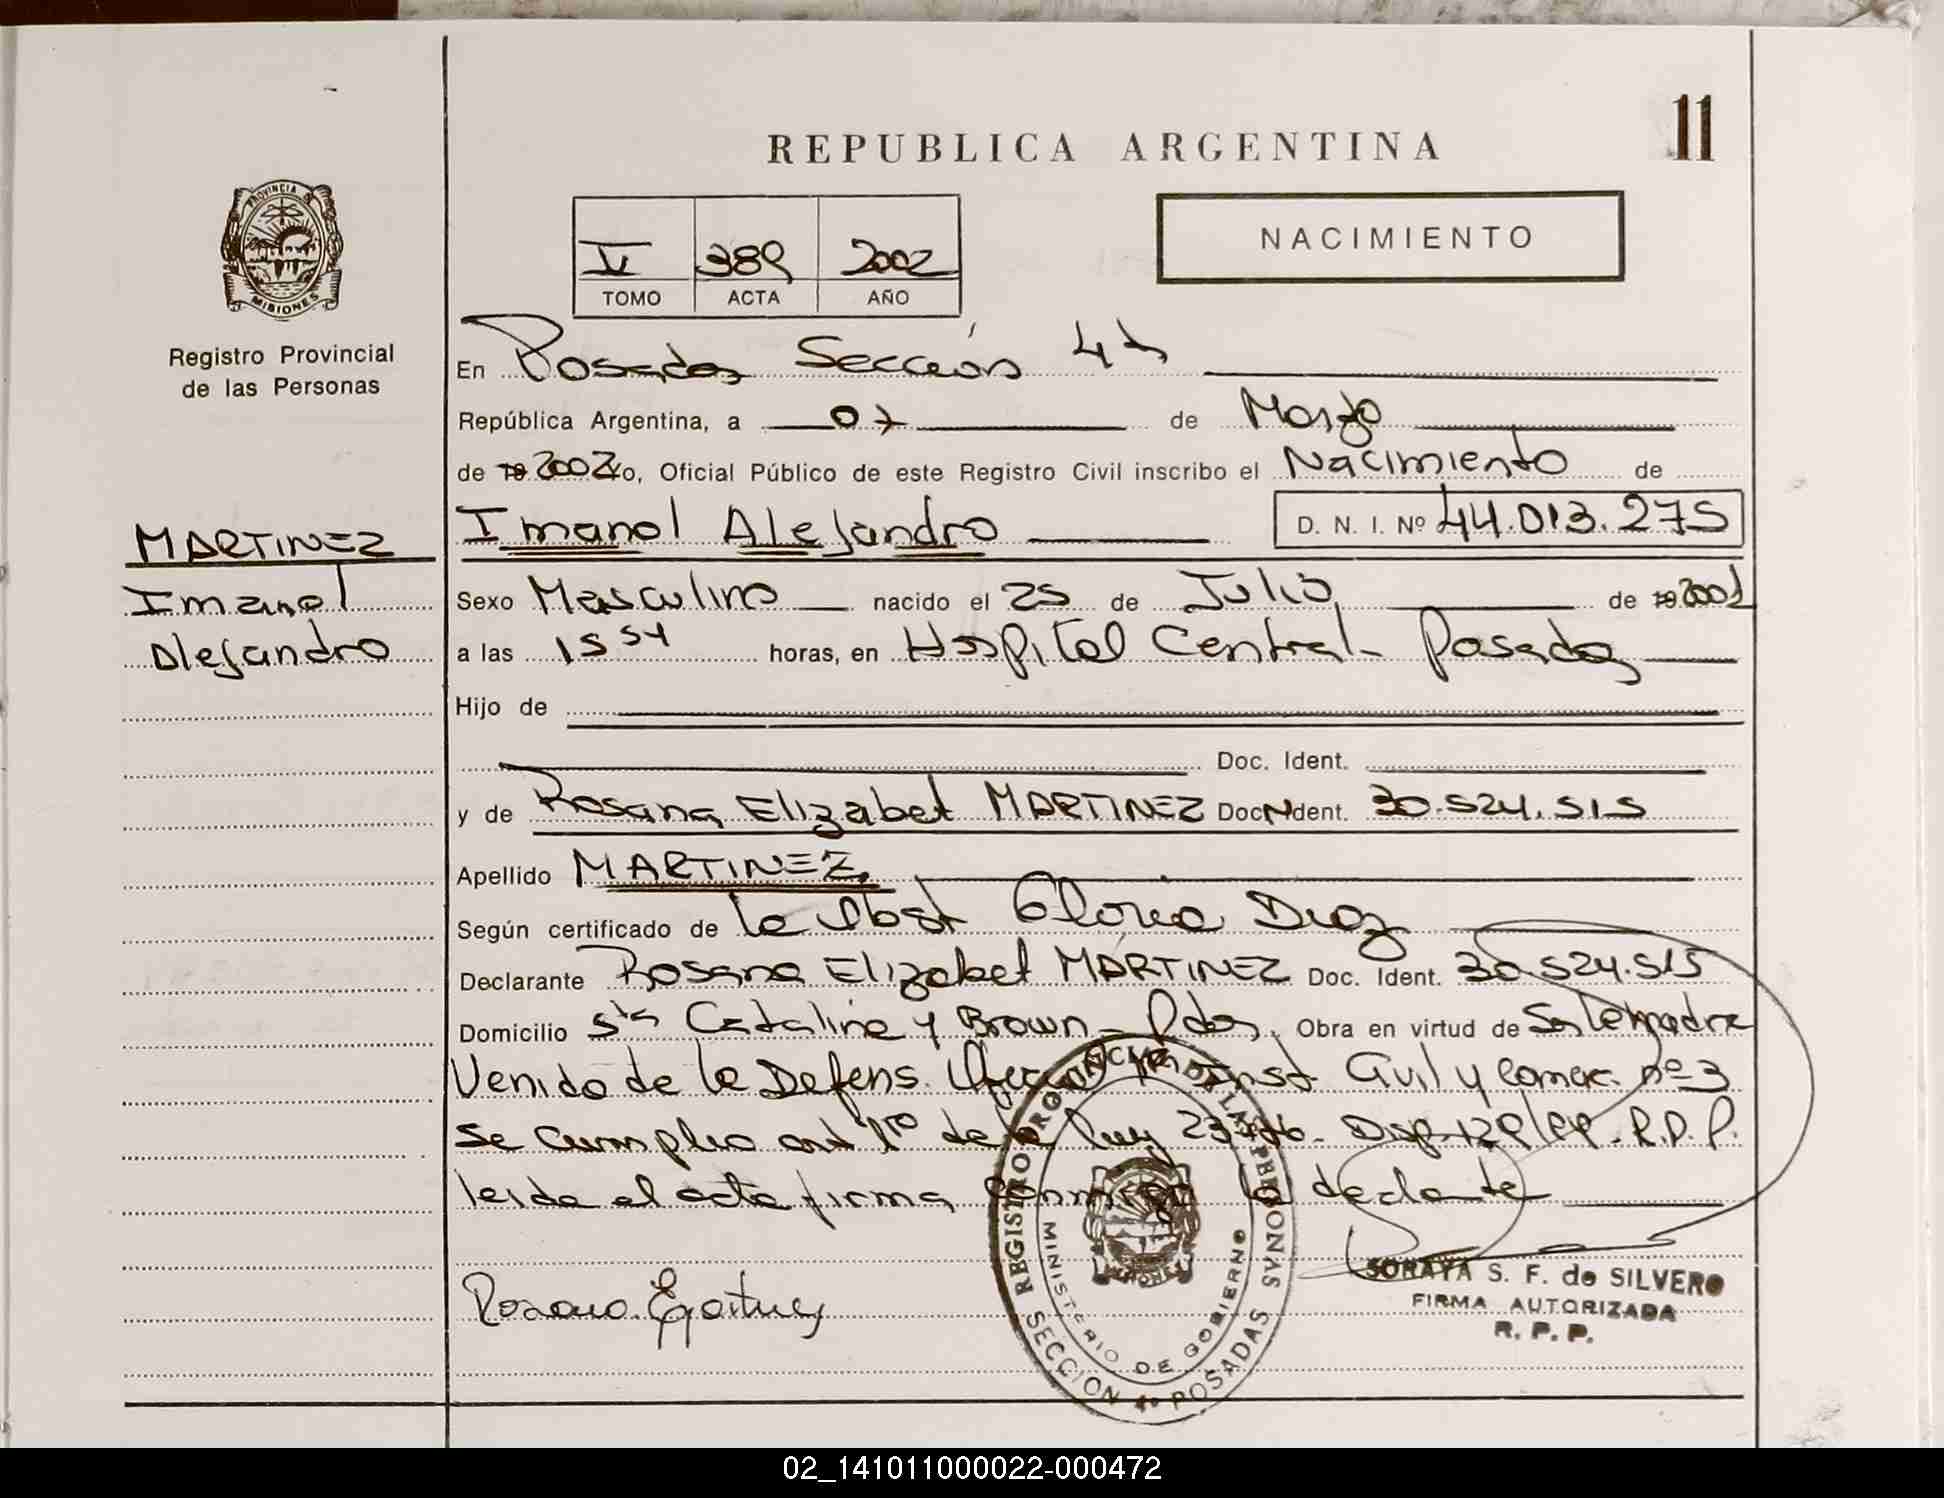 11
REPUBLICA ARGENTINA
PROVINCIA DE MISIONES
NACIMIENTO
V 389 2002
TOMO ACTA AÑO
Registro Provincial
de las Personas
En Posadas Sección 4ta
República Argentina, a 07 de Marzo
de 19 2002 Yo, Oficial Público de este Registro Civil inscribo el Nacimiento de
MARTINEZ
Imanol
Alejandro
Imanol Alejandro D. N. I. Nº 44.013.275
Sexo Masculino nacido el 25 de Julio de 19 2001
a las 15 54 horas, en Hospital Central - Posadas
Hijo de
Doc. Ident.
y de Rosana Elizabet MARTINEZ Doc. Ident. 30.524.515
Apellido MARTINEZ
Según certificado de la Obst Gloria Diaz
Declarante Rosana Elizabet MARTINEZ Doc. Ident. 30.524.515
Domicilio Sta Catalina y Brown - Pdas. Obra en virtud de ser la madre
Venido de la Defens. Inst Civil y Comerc. nº 3
se cumplio art 1º de la ley Disp 129/99. R.P.P.
leida el acta firma conmigo la
REGISTRO PROVINCIAL DE LAS PERSONAS
MINISTERIO DE GOBIERNO
SECCION 4º POSADAS
MISIONES
SORAYA S. F. de SILVERO
FIRMA AUTORIZADA
R. P. P.
02_141011000022-000472